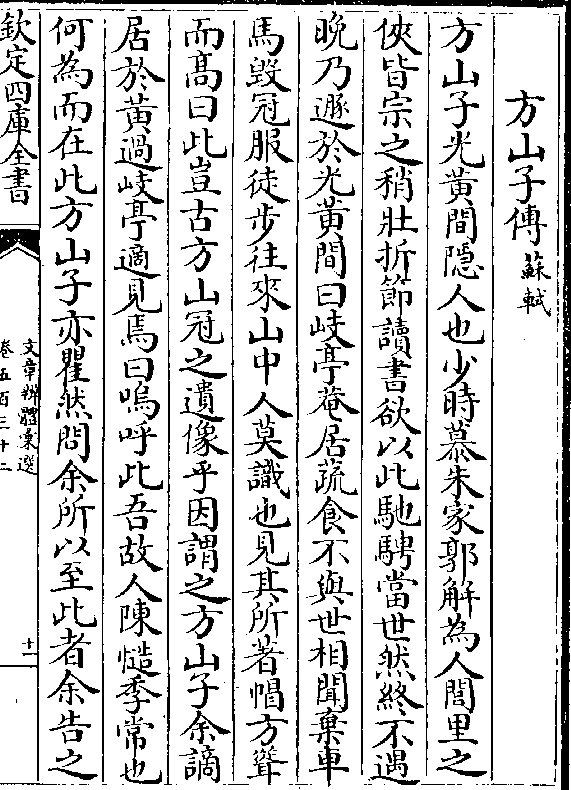 方山子傳 蘇軾
方山子光黃間隱人也少時慕朱家郭解為人閭里之
俠皆宗之稍壯折節讀書欲以此馳騁當世然終不遇
晚乃遯於光黃間曰岐亭菴居蔬食不與世相聞棄車
馬毀冠服徒步往來山中人莫識也見其所著帽方聳
而髙曰此豈古方山冠之遺像乎因謂之方山子余謫
居於黃過岐亭適見焉曰嗚呼此吾故人陳慥季常也
何為而在此方山子亦瞿然問余所以至此者余告之
欽定四庫全書
文章辨體彙選
卷五百三十二
十一